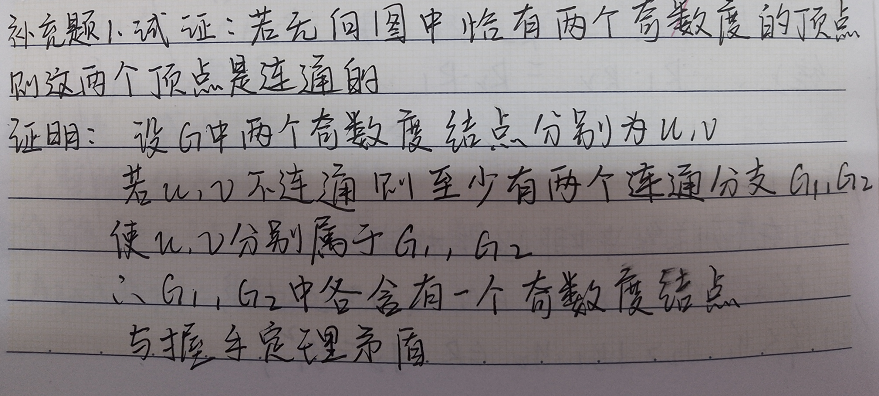 补充题1.试证:若无向图中恰有两个奇数度的顶点
则这两个顶点是连通的
证明: 设G中两个奇数度结点分别为u,v
若u,v不连通则至少有两个连通分支G1,G2
使u,v分别属于G1,G2
∴G1,G2中各含有一个奇数度结点
与握手定理矛盾